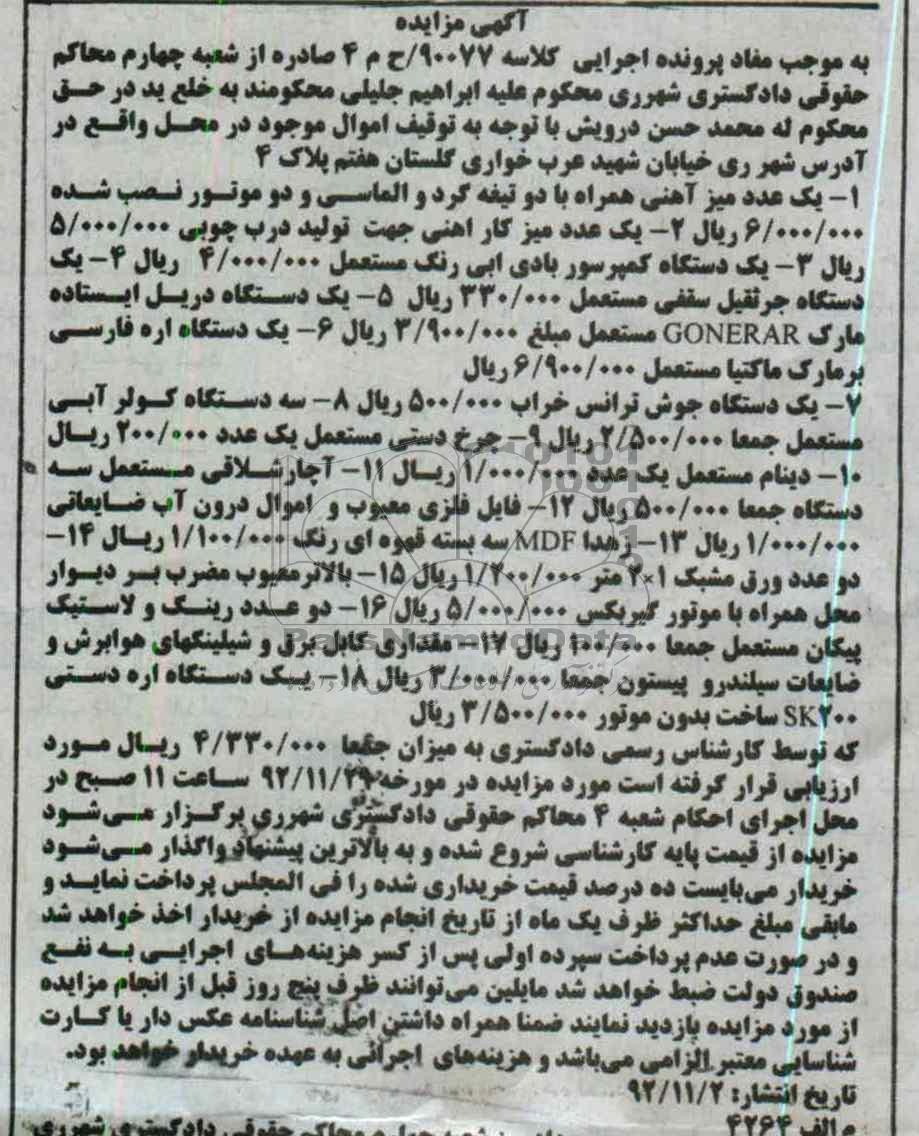 آگهی مزایده
به موجب مفاد پرونده اجرایی کلاسه ۹۰۰۷۷/ح م ۴ صادره از شعبه چهارم محاکم
حقوقی دادگستری شهرری محکوم علیه ابراهیم جلیلی محکومند به خلع ید در حق
محکوم له محمد حسن درویش با توجه به توقیف اموال موجود در محل واقع در
آدرس شهر ری خیابان شهید عرب خواری گلستان هفتم پلاک ۴
۱- یک عدد میز آهنی همراه با دو تیغه گرد و الماسی و دو موتور نصب شده
۶/۰۰۰/۰۰۰ ریال ۲- یک عدد میز کار اهنی جهت تولید درب چوبی ۵/۰۰۰/۰۰۰
ریال ۳- یک دستگاه کمپرسور بادی ابی رنگ مستعمل ۴/۰۰۰/۰۰۰ ریال ۴- یک
دستگاه جرثقیل سقفی مستعمل ۳۳۰/۰۰۰ ریال ۵- یک دستگاه دریل ایستاده
مارک GONERAR مستعمل مبلغ ۳/۹۰۰/۰۰۰ ریال ۶- یک دستگاه اره فارسی
برمارک ماکتیا مستعمل ۶/۹۰۰/۰۰۰ ریال
۷- یک دستگاه جوش ترانس خراب ۵۰۰/۰۰۰ ریال ۸- سه دستگاه کولر آبی
مستعمل جمعا ۲/۵۰۰/۰۰۰ ریال ۹- چرخ دستی مستعمل یک عدد ۲۰۰/۰۰۰ ریال
۱۰- دینام مستعمل یک عدد ۱/۰۰۰/۰۰۰ ریال ۱۱- آچارشلاقی مستعمل سه
دستگاه جمعا ۵۰۰/۰۰۰ ریال ۱۲- فایل فلزی معیوب و اموال درون آب ضایعاتی
۱/۰۰۰/۰۰۰ ریال ۱۳- زهدا MDF سه بسته قهوه ای رنگ ۱/۱۰۰/۰۰۰ ریال ۱۴-
دو عدد ورق مشبک ۱×۲ متر ۱/۲۰۰/۰۰۰ ریال ۱۵- بالابرمعیوب مضرب بر دیوار
محل همراه با موتور گیربکس ۵/۰۰۰/۰۰۰ ریال ۱۶- دو عدد رینگ و لاستیک
پیکان مستعمل جمعا ۴۰۰/۰۰۰ ریال ۱۷- مقداری کابل برق و شیلنگهای هوابرش و
ضایعات سیلندرو پیستون جمعا ۳/۰۰۰/۰۰۰ ریال ۱۸- یک دستگاه اره دستی
SK۲۰۰ ساخت بدون موتور ۳/۵۰۰/۰۰۰ ریال
که توسط کارشناس رسمی دادگستری به میزان جمعا ۴/۳۳۰/۰۰۰ ریال مورد
ارزیابی قرار گرفته است مورد مزایده در مورخه ۹۲/۱۱/۲۹ ساعت ۱۱ صبح در
محل اجرای احکام شعبه ۴ محاکم حقوقی دادگستری شهرری برگزار می‌شود
مزایده از قیمت پایه کارشناسی شروع شده و به بالاترین پیشنهاد واگذار می‌شود
خریدار می‌بایست ده درصد قیمت خریداری شده را فی المجلس پرداخت نماید و
مابقی مبلغ حداکثر ظرف یک ماه از تاریخ انجام مزایده از خریدار اخذ خواهد شد
و در صورت عدم پرداخت سپرده اولی پس از کسر هزینه‌های اجرایی به نفع
صندوق دولت ضبط خواهد شد مایلین می‌توانند ظرف پنج روز قبل از انجام مزایده
از مورد مزایده بازدید نمایند ضمنا همراه داشتن اصل شناسنامه عکس دار یا کارت
شناسایی معتبر الزامی می‌باشد و هزینه‌های اجرائی به عهده خریدار خواهد بود.
تاریخ انتشار: ۹۲/۱۱/۲
م الف ۴۲۶۴
شعبه چهارم محاکم حقوقی دادگستری شهرری
ParsNamadData